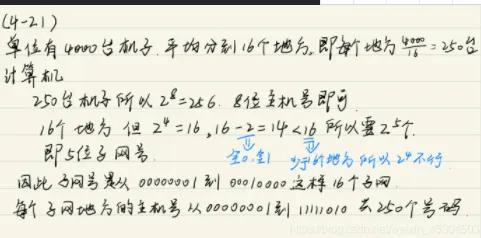 (4-21)
单位有4000台机子.平均分到16个地方,即每个地方4000/16=250台
计算机
250台机子所以2^8=256. 8位主机号即可
16个地方 但 2^4=16, 16-2=14<16 所以要2^5个.
全0,全1 少于16个地方 所以2^4不行.
即5位子网号.
因此子网号是从 00000001 到 00010000 这样16个子网.
每个子网地方的主机号从 00000001 到 11111010 共250个号码.
https://blog.csdn.net/weixin_45304503